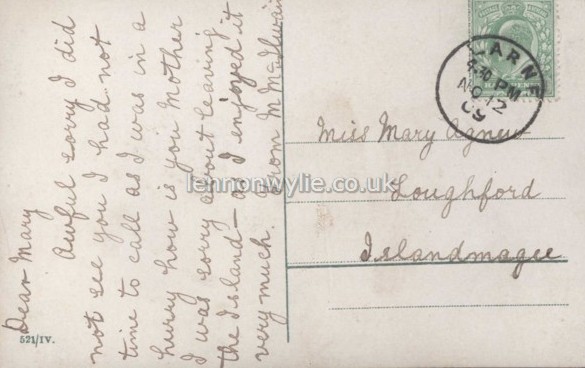 Dear Mary
Awful sorry I did
not see you I had not
time to call as I was in a
hurry how is you Mother
I was sorry about leaving
the Island - as I enjoyed it
very much. From M McIlwain
521/IV.
LARNE
4.30 PM
NO 12
09
Miss Mary Agnew
Loughford
Islandmagee
lennonwylie.co.uk